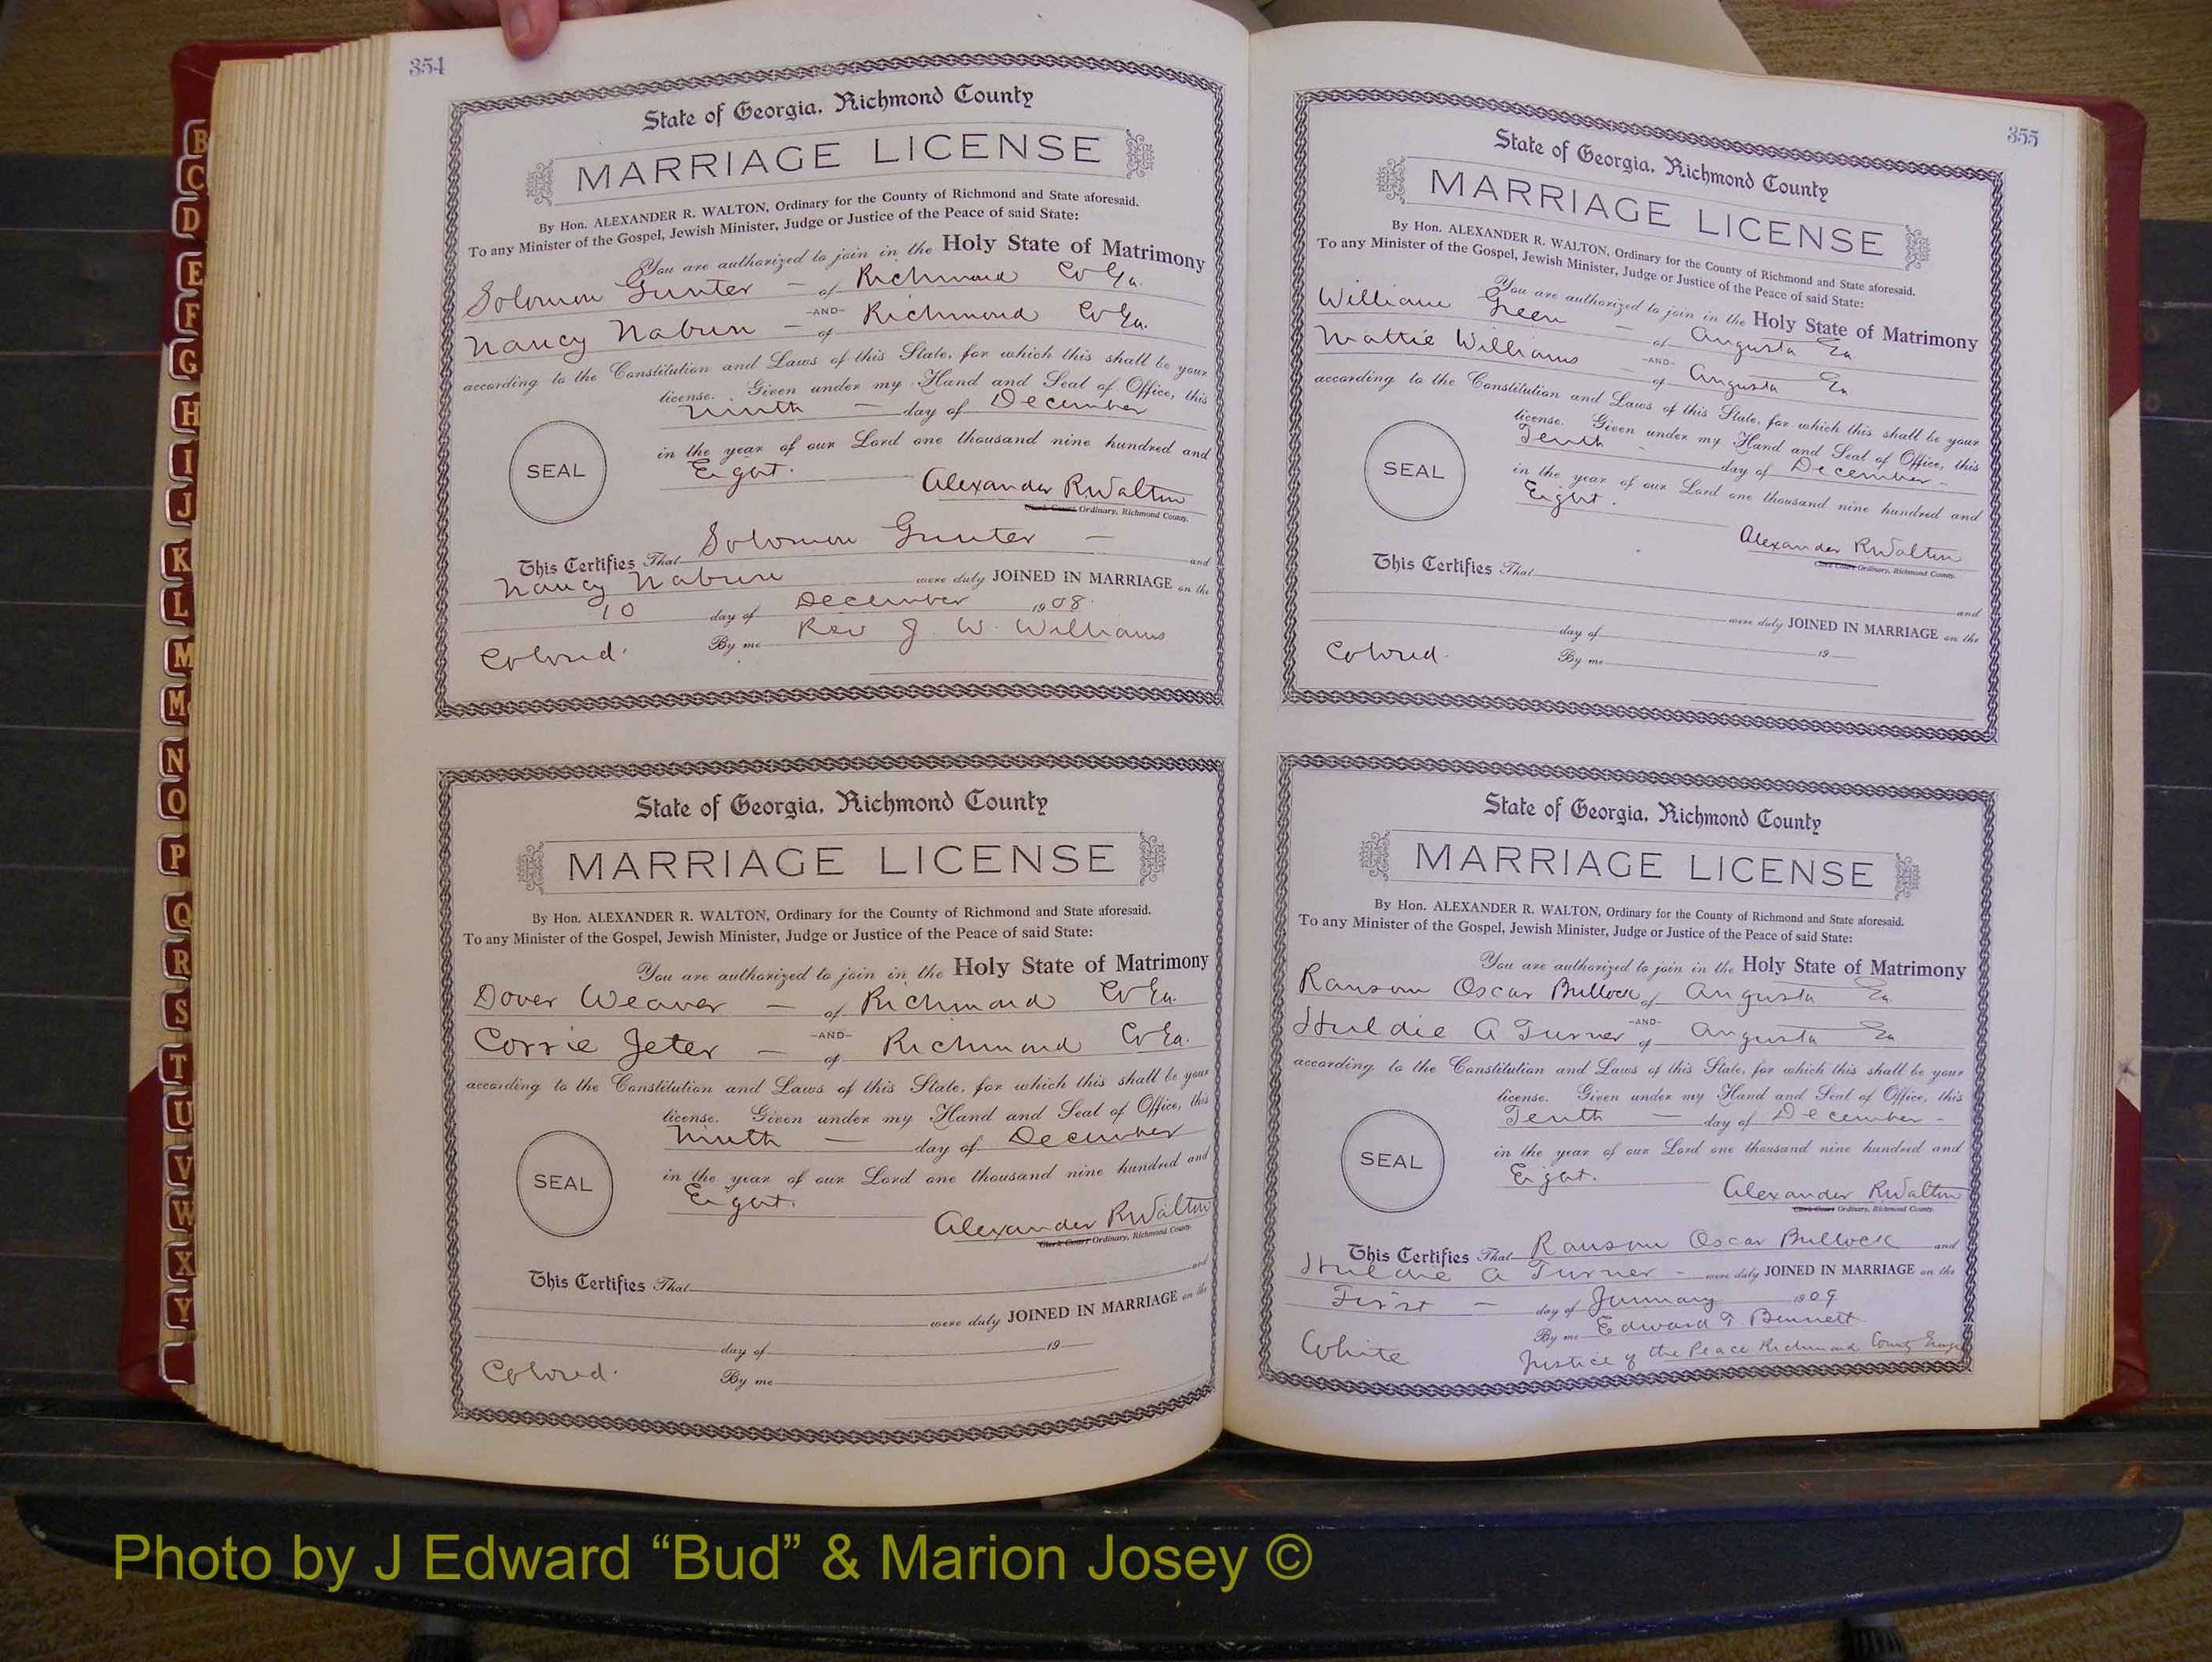 354
State of Georgia, Richmond County
MARRIAGE LICENSE
By Hon. ALEXANDER R. WALTON, Ordinary for the County of Richmond and State aforesaid.
To any Minister of the Gospel, Jewish Minister, Judge or Justice of the Peace of said State:
You are authorized to join in the Holy State of Matrimony
Solomon Gunter - of Richmond Co Ga.
-AND-
Nancy Nabun - of Richmond Co Ga.
according to the Constitution and Laws of this State, for which this shall be your
license. Given under my Hand and Seal of Office, this
ninth - day of December
in the year of our Lord one thousand nine hundred and
Eight.
SEAL
Alexander R Walton
Clerk Court Ordinary, Richmond County.
This Certifies That Solomon Gunter - and
Nancy Nabun were duly JOINED IN MARRIAGE on the
10 day of December 1908.
Colored. By me Rev J. W. Williams
State of Georgia, Richmond County
MARRIAGE LICENSE
By Hon. ALEXANDER R. WALTON, Ordinary for the County of Richmond and State aforesaid.
To any Minister of the Gospel, Jewish Minister, Judge or Justice of the Peace of said State:
You are authorized to join in the Holy State of Matrimony
Dover Weaver - of Richmond Co Ga.
-AND-
Corrie Jeter - of Richmond Co Ga.
according to the Constitution and Laws of this State, for which this shall be your
license. Given under my Hand and Seal of Office, this
ninth - day of December
in the year of our Lord one thousand nine hundred and
Eight.
SEAL
Alexander R Walton
Clerk Court Ordinary, Richmond County.
This Certifies That and
were duly JOINED IN MARRIAGE on the
day of 19
Colored. By me
355
State of Georgia, Richmond County
MARRIAGE LICENSE
By Hon. ALEXANDER R. WALTON, Ordinary for the County of Richmond and State aforesaid.
To any Minister of the Gospel, Jewish Minister, Judge or Justice of the Peace of said State:
You are authorized to join in the Holy State of Matrimony
William Green - of Augusta Ga
-AND-
Mattie Williams of Augusta Ga
according to the Constitution and Laws of this State, for which this shall be your
license. Given under my Hand and Seal of Office, this
Tenth - day of December -
in the year of our Lord one thousand nine hundred and
Eight.
SEAL
Alexander R Walton
Clerk Court Ordinary, Richmond County.
This Certifies That and
were duly JOINED IN MARRIAGE on the
day of 19
Colored. By me
State of Georgia, Richmond County
MARRIAGE LICENSE
By Hon. ALEXANDER R. WALTON, Ordinary for the County of Richmond and State aforesaid.
To any Minister of the Gospel, Jewish Minister, Judge or Justice of the Peace of said State:
You are authorized to join in the Holy State of Matrimony
Ransom Oscar Bullock of Augusta Ga.
-AND-
Huldie A Turner of Augusta Ga
according to the Constitution and Laws of this State, for which this shall be your
license. Given under my Hand and Seal of Office, this
Tenth - day of December -
in the year of our Lord one thousand nine hundred and
Eight.
SEAL
Alexander R Walton
Clerk Court Ordinary, Richmond County.
This Certifies That Ransom Oscar Bullock and
Huldie A Turner - were duly JOINED IN MARRIAGE on the
First - day of January 1909
By me Edward T. Bennett
White Justice of the Peace Richmond County
B
C
D
E
F
G
H
I
J
K
L
M
Mc
N
O
P
Q
R
S
T
U
V
W
X
Y
Photo by J Edward “Bud” & Marion Josey ©